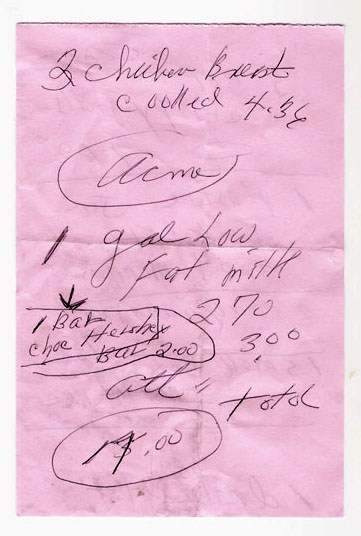 2 chicken Breast
coolled 4.36
acme
1 gal Low
Fat milk
270
1 Bar
choc Hershey
Bar 2.00
3.00
all "
total
.00